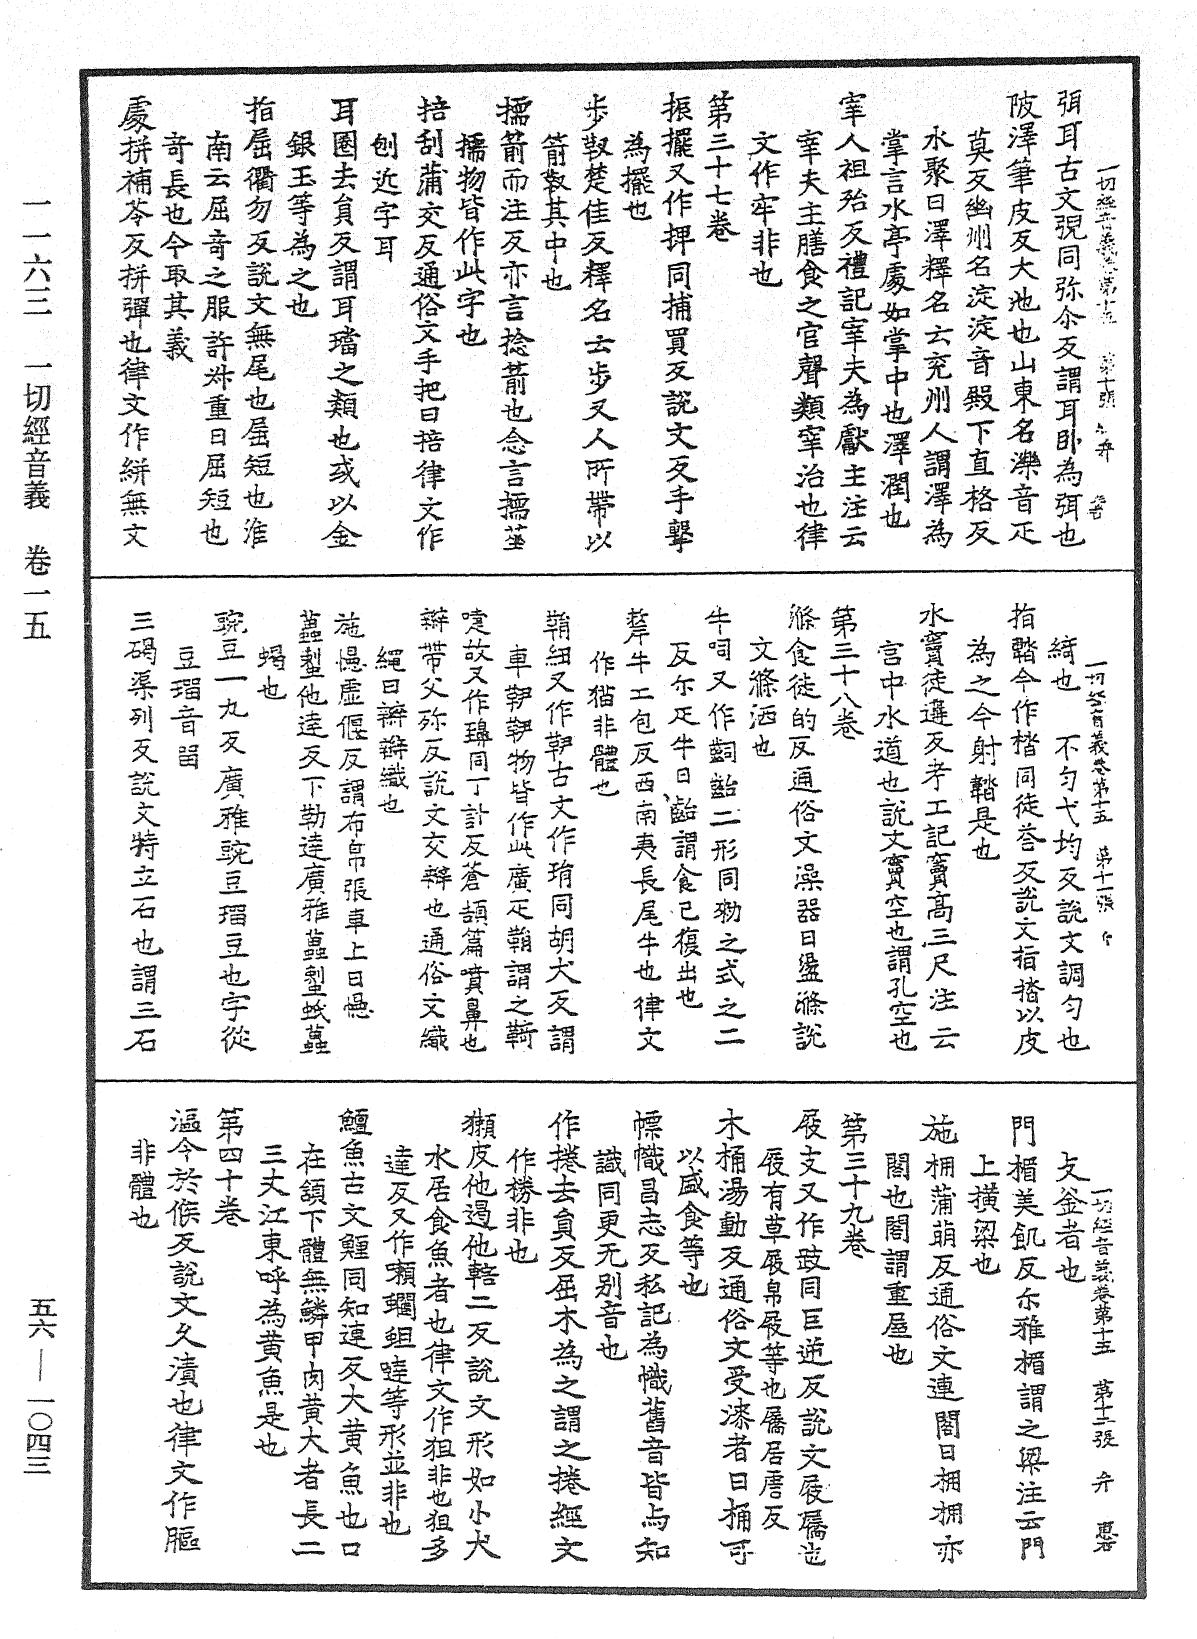 一一六三　一切經音義　卷一五
五六—一〇四三
一切經音義卷第十五　第十張　弁
弭耳古文𧧼同弥尒反謂耳卧為弭也
陂澤筆皮反大池也山東名濼音疋
莫反幽州名淀淀音殿下直格反
水聚曰澤釋名云兖州人謂澤為
掌言水亭處如掌中也澤潤也
宰人祖殆反禮記宰夫為獻主注云
宰夫主膳食之官聲類宰治也律
文作牢非也
第三十七卷
振擺又作捭同捕買反說文反手擊
為擺也
步靫楚佳反釋名云步叉人所帶以
箭靫其中也
擩箭而注反亦言捻箭也念言擩莝
擩物皆作此字也
掊刮蒲交反通俗文手把曰掊律文作
刨近字耳
耳圈去負反謂耳璫之類也或以金
銀玉等為之也
指屈衢勿反說文無尾也屈短也淮
南云屈奇之服許𠦑重曰屈短也
竒長也今取其義
處拼補苓反拼彈也律文作絣無文
一切經音義卷第十五　第十一張
綺也　不勻弋均反說文調勻也
指韜今作㧺同徒荅反說文指揩以皮
為之今射韜是也
水竇徒遘反考工記竇高三尺注云
宫中水道也說文竇空也謂孔空也
第三十八卷
滌食徒的反通俗文澡器曰盪滌說
文滌洒也
牛呞又作齝齝二形同勑之式之二
反尒疋牛曰齝謂食已復出也
犛牛工包反西南夷長尾牛也律文
作猫非體也
鞙紐又作䩙古文作琄同胡犬反謂
車䩙䩙物皆作此廣疋鞙謂之䩭
嚏故又作䶍同丁計反蒼頡篇噴鼻也
辮帶父殄反說文交辮也通俗文織
繩曰辮辮織也
施幰虛偃反謂布帛張車上曰幰
蠆𧍒他達反下勒達廣雅蠆𧍒蚔蠆
蝎也
豌豆一九反廣雅豌豆䝁豆也字從
豆䝁音留
三碣渠列反說文特立石也謂三石
一切經音義卷第十五　第十二張　弁
攴釜者也
門楣美飢反尒雅楣謂之梁注云門
上橫梁也
施棚蒲萠反通俗文連閣曰棚棚亦
閣也閣謂重屋也
第三十九卷
屐支又作跂同巨逆反說文屐屩也
屐有草屐帛屐等也屩居虐反
木桶湯動反通俗文受漆者曰桶可
以盛食等也
幖幟昌志反私記為幟舊音皆与知
識同更无别音也
作捲去負反屈木為之謂之捲經文
作勝非也
獺皮他遏他轄二反說文形如小犬
水居食魚者也律文作狚非也狚多
達反又作㺚䦨䱇㺚等形並非也
鱣魚古文䱼同知連反大黄魚也口
在頷下體無鱗甲肉黄大者長二
三丈江東呼為黄魚是也
第四十卷
漚今於候反說文久漬也律文作䐈
非體也